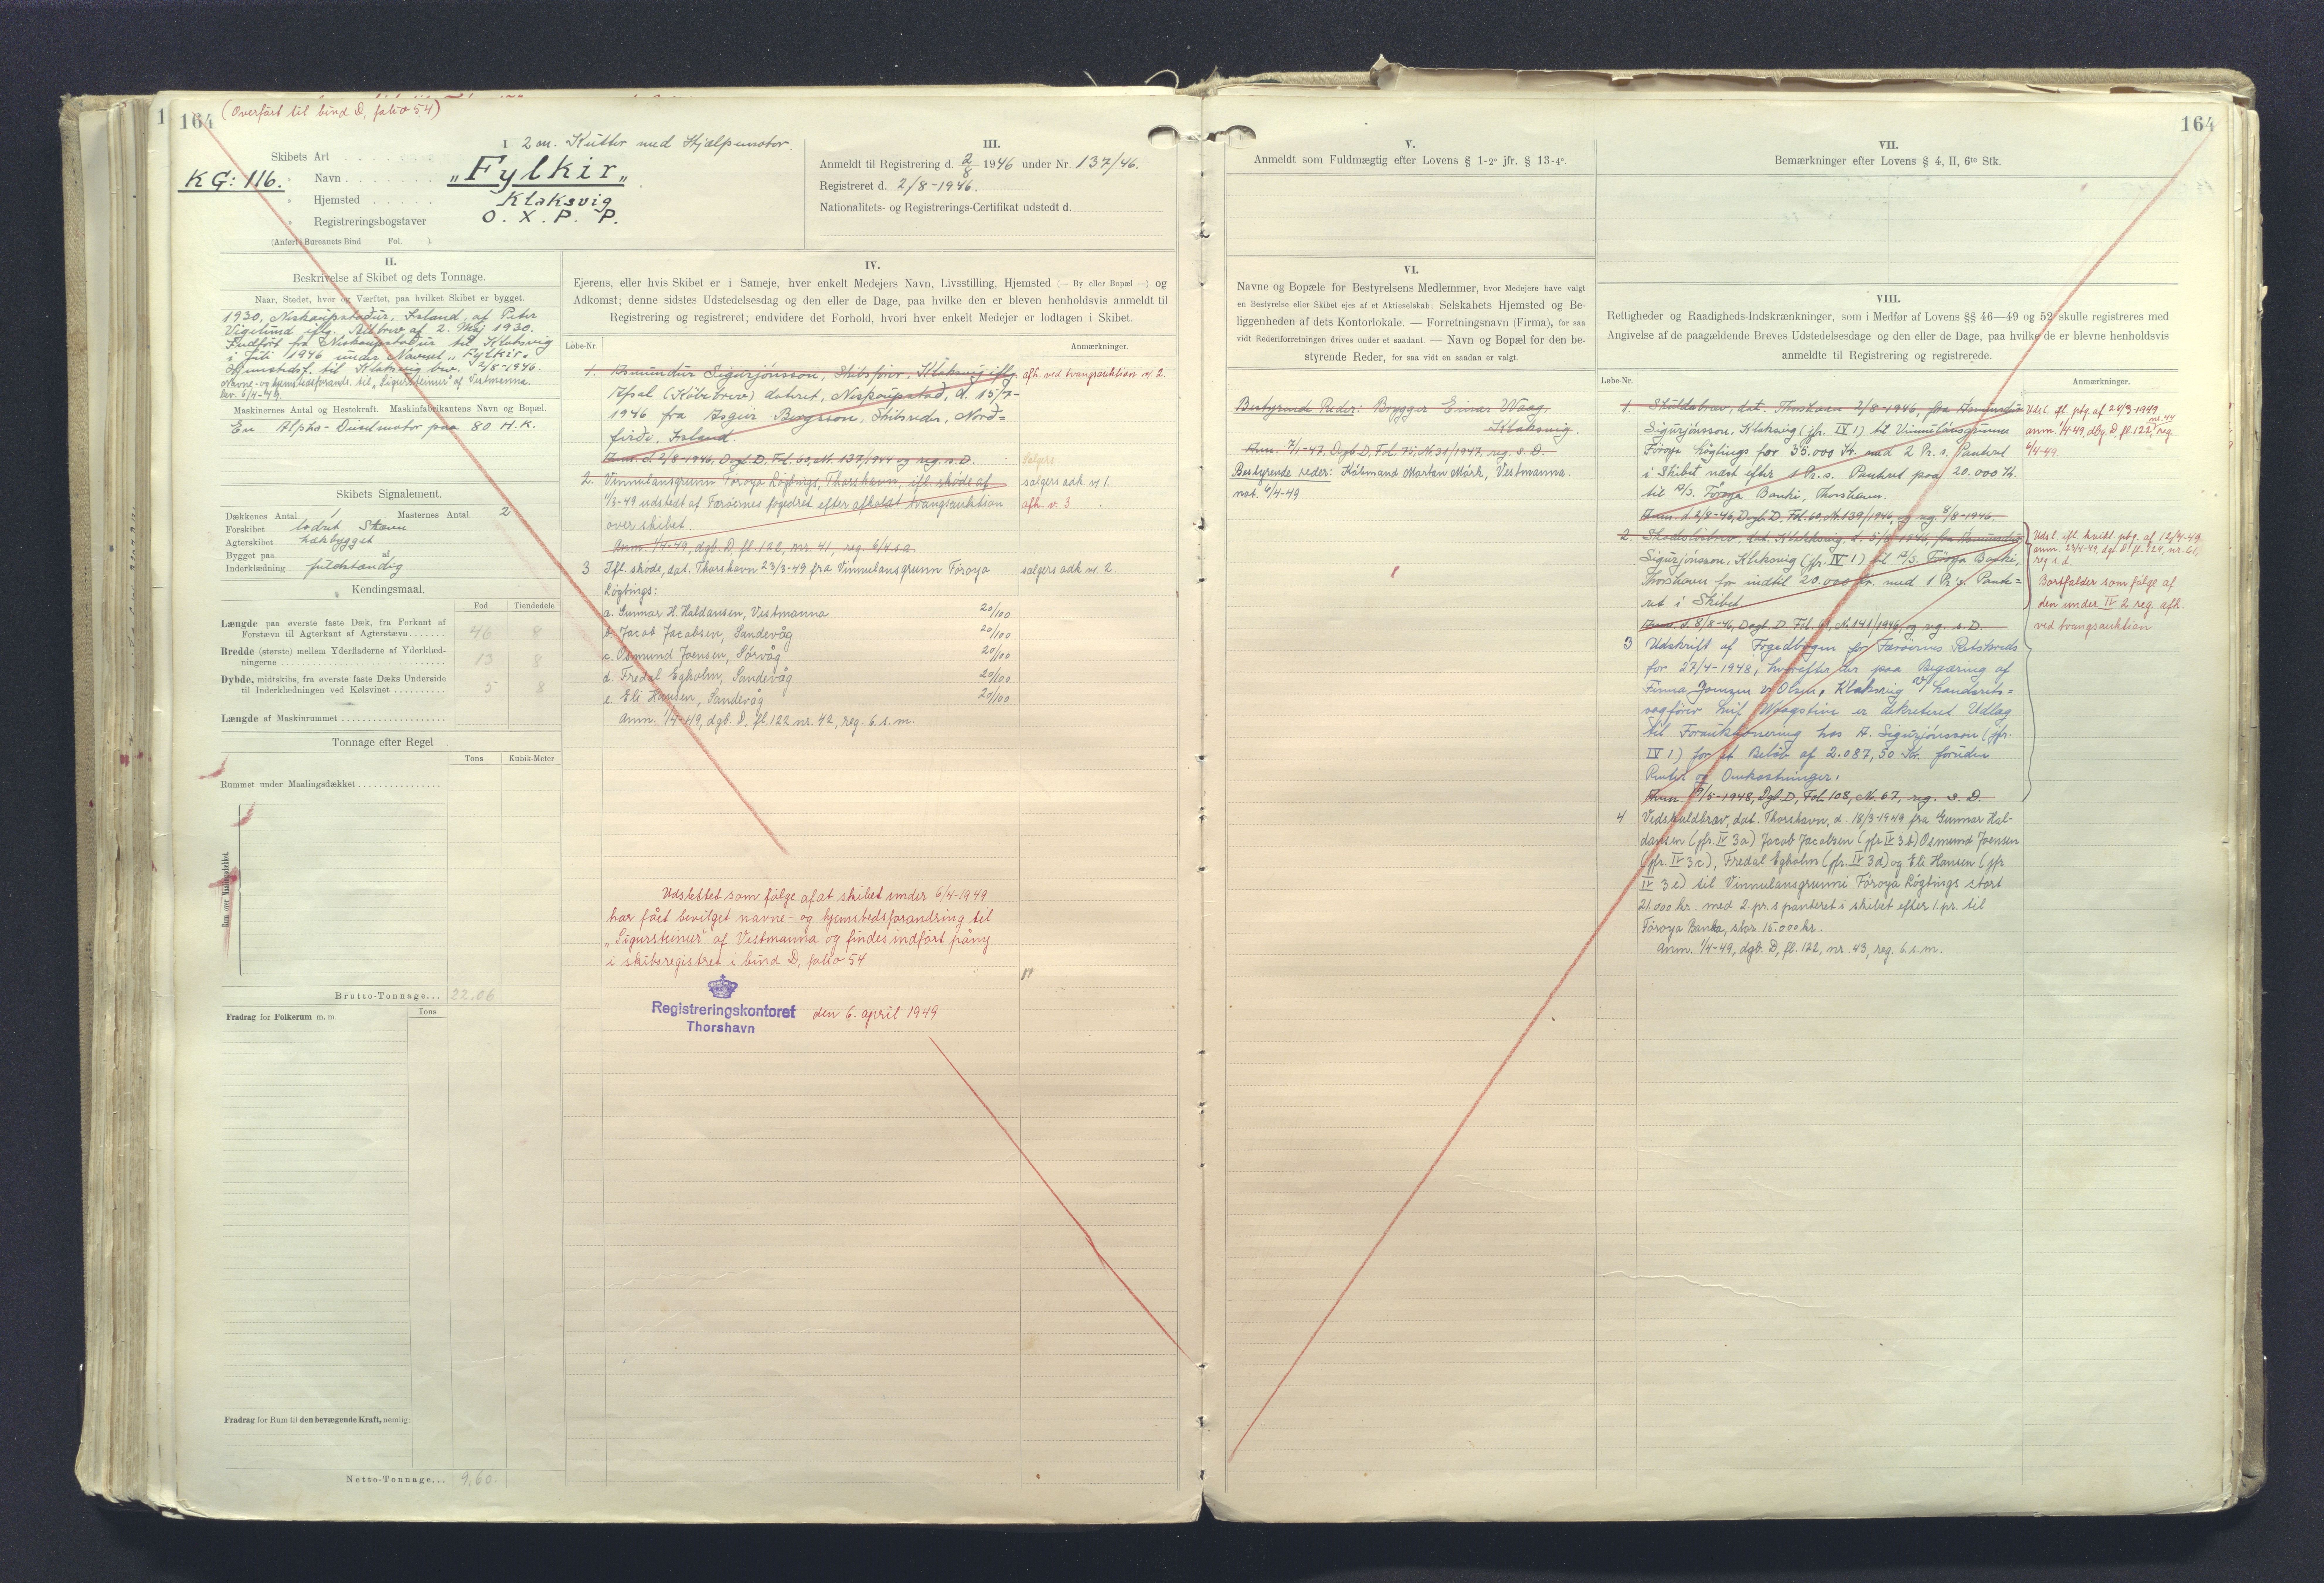 164 (Overført til bind D, folio 54)
I 2 m. Kutter med Hjælpemotor.
Skibets Art
KG: 116.
Navn "Fylkir"
Hjemsted Klaksvig
Registreringsbogstaver O. X. P. P.
(Anført i Bureauets Bind Fol. ).
III.
Anmeldt til Registrering d. 2/8 1946 under Nr. 137/46.
Registreret d. 2/8-1946.
Nationalitets- og Registrerings-Certifikat udstedt d.
II.
Beskrivelse af Skibet og dets Tonnage.
Naar, Stedet, hvor og Værftet, paa hvilket Skibet er bygget.
1930, Neskaupstadur, Island, af Peter
Vigelund iflg. Bilbrev af 2. Maj 1930.
Indført fra Neskaupstadur til Klaksvig
i Juli 1946 under Navnet "Fylkir"
Hjemstedsf. til Klaksvig bev. 2/8-1946.
Navne- og hjemstedsforandr. til "Sigursteinur" af Vestmanna
bev. 6/4-49.
Maskinernes Antal og Hestekraft. Maskinfabrikantens Navn og Bopæl.
En Alpha-Dieselmotor paa 80 H.K.
Skibets Signalement.
Dækkenes Antal 1 Masternes Antal 2
Forskibet lodret Stævn
Agterskibet hækbygget
Bygget paa af
Inderklædning fuldstændig
Kendingsmaal.
Fod Tiendedele
Længde paa øverste faste Dæk, fra Forkant af
Forstævn til Agterkant af Agterstævn 46 8
Bredde (største) mellem Yderfladerne af Yderklæd-
ningerne 13 8
Dybde, midtskibs, fra øverste faste Dæks Underside
til Inderklædningen ved Kølsvinet 5 8
Længde af Maskinrummet
Tonnage efter Regel
Tons Kubik-Meter
Rummet under Maalingsdækket
Rum over Maalingsdækket.
Brutto-Tonnage... 22,06
Fradrag for Folkerum m. m. Tons
Fradrag for Rum til den bevægende Kraft, nemlig:
Netto-Tonnage... 9,60
IV.
Ejerens, eller hvis Skibet er i Sameje, hver enkelt Medejers Navn, Livsstilling, Hjemsted (— By eller Bopæl —) og
Adkomst; denne sidstes Udstedelsesdag og den eller de Dage, paa hvilke den er bleven henholdsvis anmeldt til
Registrering og registreret; endvidere det Forhold, hvori hver enkelt Medejer er lodtagen i Skibet.
Løbe-Nr. Anmærkninger.
1. Asmundur Sigurjónsson, Skibsfører, Klaksvig iflg. afh. ved tvangsauktion nr. 2.
Afsal (Köbebrev) dateret, Neskaupstad, d. 15/7-
1946 fra Asgeir Bergsson, Skibsreder, Nord=
firdi, Island.
Anm. d. 2/8-1946, Dagb. D, Fol. 60, Nr. 137/1946 og reg. s. D.
2. Vinnulansgrunn Föroya Løgtings, Thorshavn, ifl. skøde af sælgers adk. nr 1.
1/3-49 udstedt af Færøernes fogedret efter afholdt tvangsauktion afh. nr. 3
over skibet.
Anm. 1/4-49, dgb. D, fl. 122, nr. 41, reg. 6/4 s.a.
3 Ifl. skøde, dat. Thorshavn 23/3-49 fra Vinnulansgrunn Föroya sælgers adk nr. 2.
Løgtings:
a. Gunnar H. Haldansen, Vestmanna 20/100
b. Jacob Jacobsen, Sandevåg 20/100
c. Osmund Joensen, Sørvåg 20/100
d. Fredal Egholm, Sandevåg 20/100
e. Eli Hansen, Sandevåg 20/100
Anm. 1/4-49, dgb. D, fl. 122 nr. 42, reg. 6. s. m.
Udslettet som følge af at skibet under 6/4-1949
har fået bevilget navne- og hjemstedsforandring til
"Sigursteinur" af Vestmanna og findes indført påny
i skibsregistret i bind D, folio 54
Registreringskontoret den 6. april 1949
Thorshavn
164
V.
Anmeldt som Fuldmægtig efter Lovens § 1-2° jfr. § 13-4°.
VI.
Navne og Bopæle for Bestyrelsens Medlemmer, hvor Medejere have valgt
en Bestyrelse eller Skibet ejes af et Aktieselskab; Selskabets Hjemsted og Be-
liggenheden af dets Kontorlokale. — Forretningsnavn (Firma), for saa
vidt Rederiforretningen drives under et saadant. — Navn og Bopæl for den be-
styrende Reder, for saa vidt en saadan er valgt.
Bestyrende Reder: Brygger Einar Waag,
Klaksvig.
Anm. 7/1-47, Dagb D, Fol. 75, Nr. 31/1947, reg. s. D.
Bestyrende reder: Købmand Morten Mørk, Vestmanna.
not. 6/4-49
VII.
Bemærkninger efter Lovens § 4, II, 6te Stk.
VIII.
Rettigheder og Raadigheds-Indskrænkninger, som i Medfør af Lovens §§ 46—49 og 52 skulle registreres med
Angivelse af de paagældende Breves Udstedelsesdage og den eller de Dage, paa hvilke de er blevne henholdsvis
anmeldte til Registrering og registrerede.
Løbe-Nr. Anmærkninger.
1. Skuldabrev, dat. Thorshavn 2/8-1946, fra Asmundur Udsl. ifl. ptg. af 24/3-1949
Sigurjónsson, Klaksvig (jfr. IV 1) til Vinnulánsgrunn anm. 1/4-49, dbg. D, fl. 122, nr. 44 reg.
Föroya Lögtings for 35.000 Kr. med 2 Pr. s. Panteret 6/4-49.
i Skibet næst efter 1 Pr. s. Panteret paa 20.000 Kr.
til A/S. Föroya Banki, Thorshavn.
Anm. d 2/8-46, Dagb. D, Fol. 60, Nr. 139/1946, og reg. 8/8-1946.
2. Skadesbrev, dat. Klaksvig, d. 5/8 1946, fra Asmundur Udsl. ifl. kvitt. ptg. af 12/4-49,
Sigurjónsson, Klaksvig (jfr. IV 1) til A/S. Föroya Banki, reg s. d.
Thorshavn for indtil 20.000 Kr. med 1 Pr. s. Pante= Bortfalder som følge af
ret i Skibet den under IV 2 reg. afh.
Anm. d. 8/8-46, Dagb. D. Fol. 61, Nr. 141/1946, og reg. s. D. ved tvangsauktion
3 Udskrift af Fogedbogen for Færøernes Retskreds
for 27/4-1948, hvorefter der paa Begæring af
Firma Joensen & Olsen, Klaksvig v/ Landsrets=
sagfører Leif Waagstein er dekreteret Udlæg
til Foranktionsering hos A. Sigurjónsson (jfr.
IV 1) for et Beløb af 2.087,50 Kr. foruden
Renter og Omkostninger.
Anm. /5-1948, Dgb D, Fol. 108, Nr. 67, reg. s. D.
4 Vedskuldbrev, dat. Thorshavn, d. 18/3-1949 fra Gunnar Hal-
dansen (jfr. IV 3a) Jacob Jacobsen (jfr. IV 3b) Osmund Joensen
(jfr. IV 3c), Fredal Egholm (jfr. IV 3d) og Eli Hansen (jfr
IV 3e) til Vinnulansgrunni Föroya Løgtings stort
21.000 kr. med 2. pr. s panteret i skibet efter 1. pr. til
Föroya Banka, stor 15.000 kr.
Anm. 1/4-49, dgb. D, fl. 122, nr. 43, reg. 6. s. m.